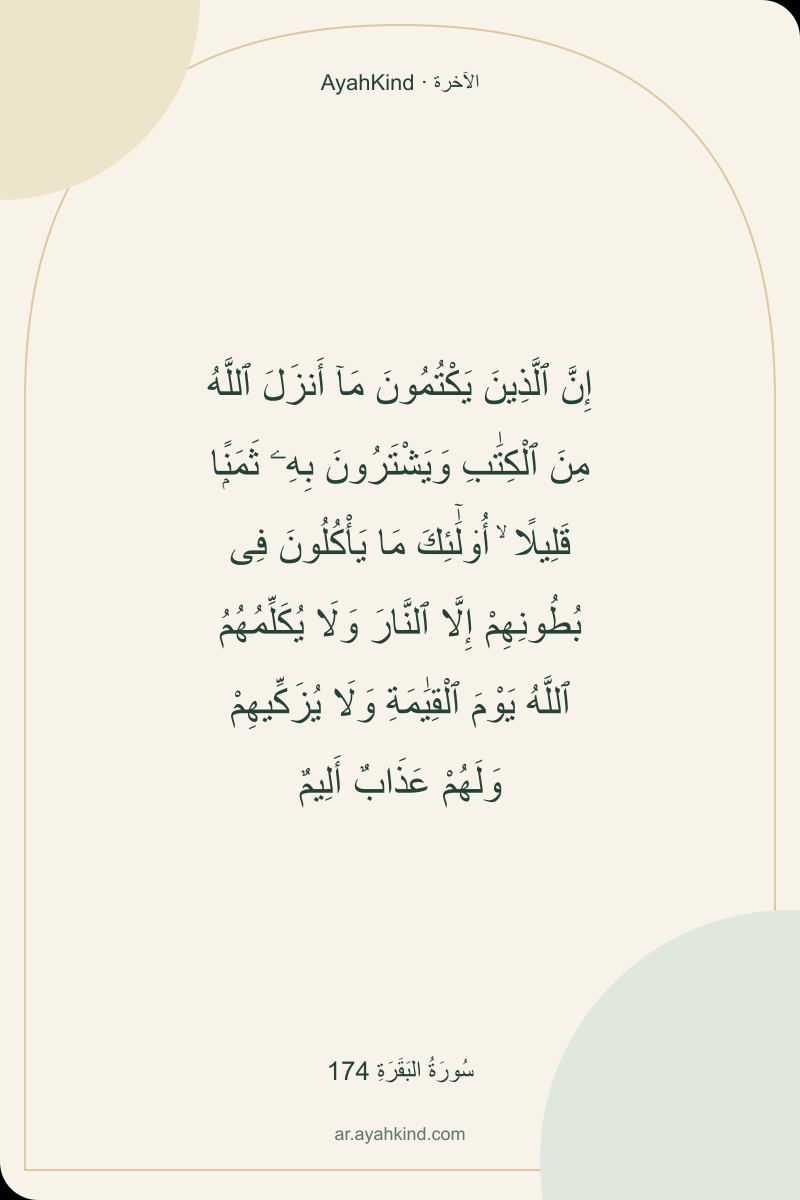 AyahKind · الآخرة
إِنَّ ٱلَّذِينَ يَكْتُمُونَ مَآ أَنزَلَ ٱللَّهُ
مِنَ ٱلْكِتَٰبِ وَيَشْتَرُونَ بِهِۦ ثَمَنًۭا
قَلِيلًا ۙ أُو۟لَٰٓئِكَ مَا يَأْكُلُونَ فِى
بُطُونِهِمْ إِلَّا ٱلنَّارَ وَلَا يُكَلِّمُهُمُ
ٱللَّهُ يَوْمَ ٱلْقِيَٰمَةِ وَلَا يُزَكِّيهِمْ
وَلَهُمْ عَذَابٌ أَلِيمٌ
سُورَةُ البَقَرَةِ 174
ar.ayahkind.com